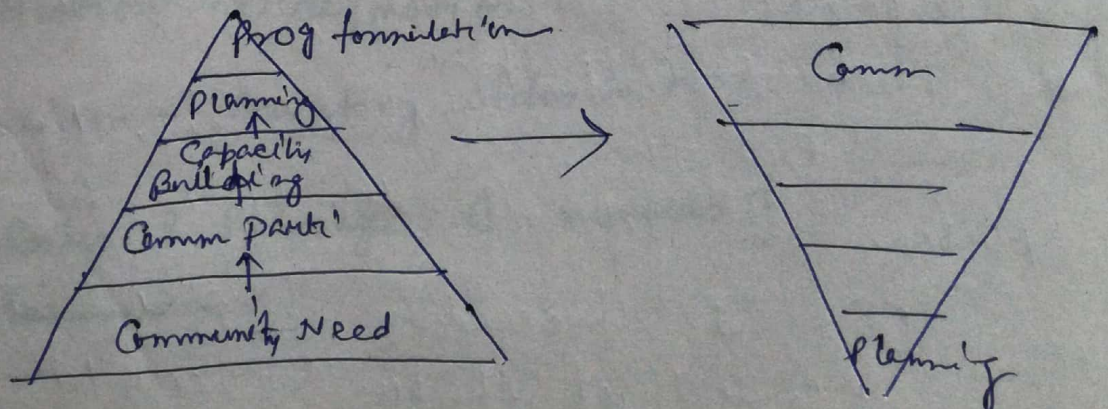 Prog formulation
Planning
Capacity
Building
Comm parti'
Community Need
Comm
Planning